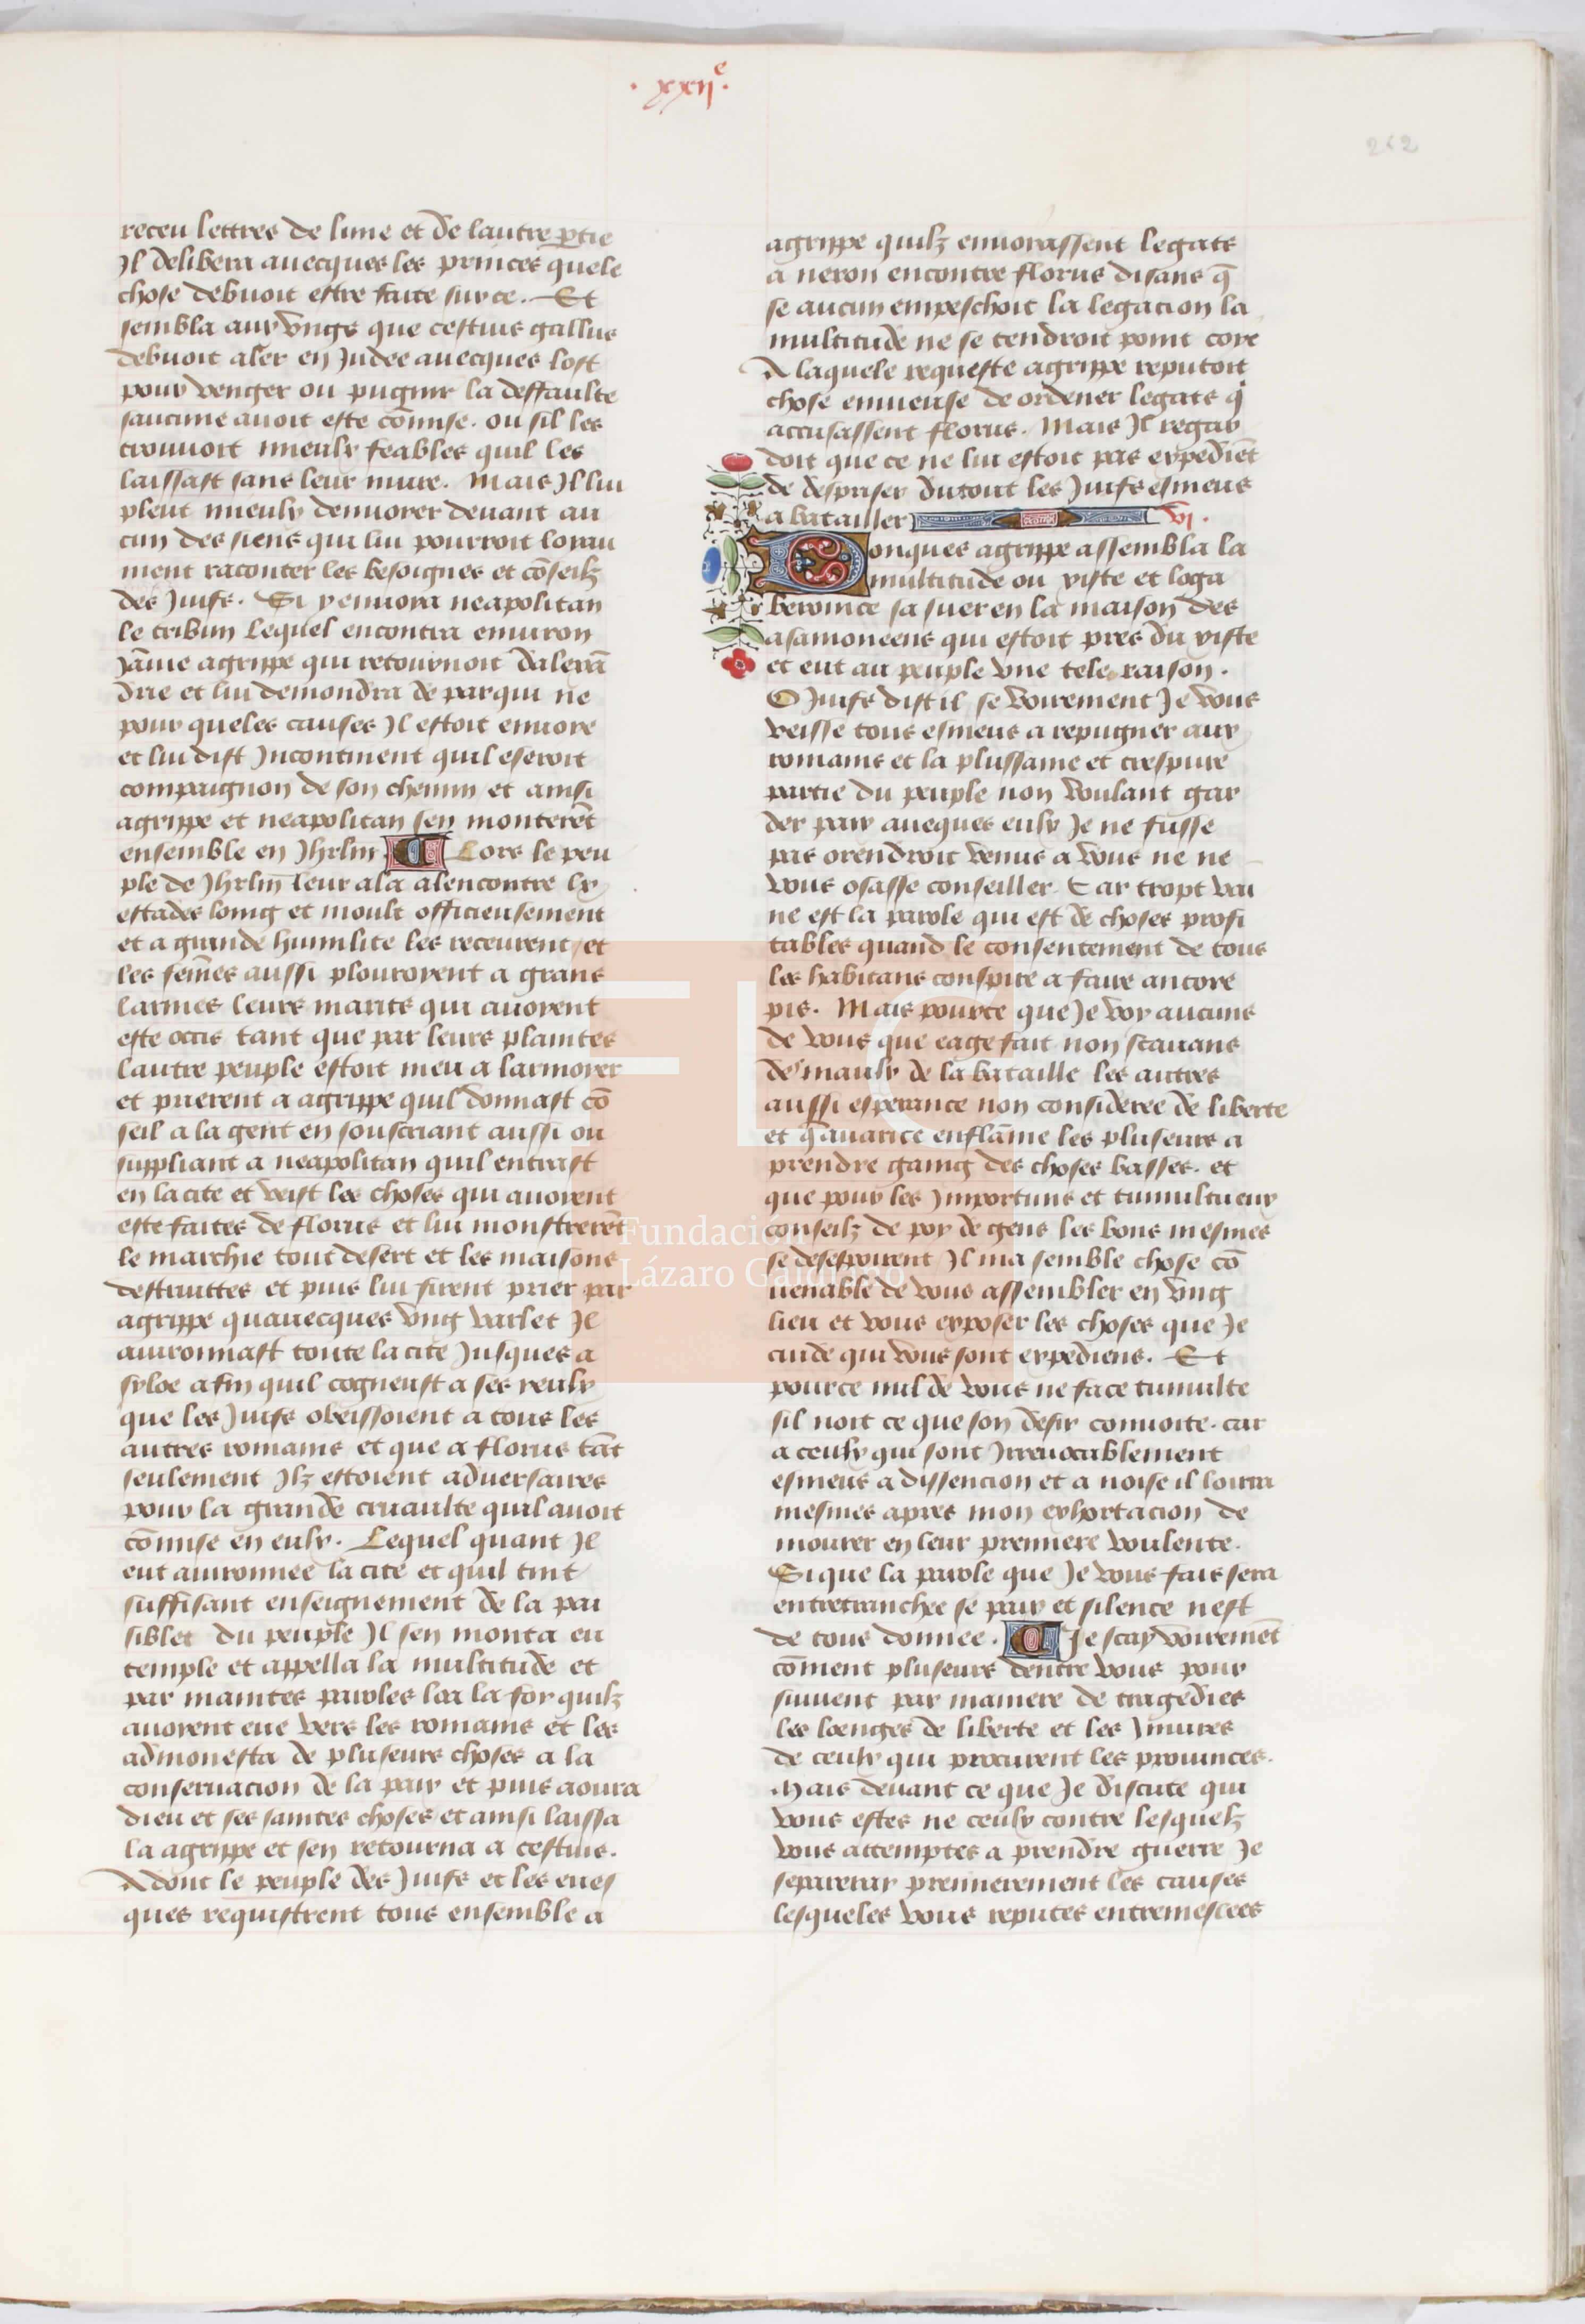 · xxij e ·
262
receu lettres de lune et de lautre ꝑtie
Il delibera auecques les princes quele
chose debuoit estre faite sur ce. Et
sembla aux vngs que cestius gallus
debuoit aler en Judee auecques lost
pour venger ou pugnir la deffaulte
saucune auoit este cōmise. ou sil les
trouuoit mieulx feables quil les
laissast sans leur nuire. Mais Il lui
pleut mieulx enuoier deuant au
cun des siens qui lui pourroit loyau
ment raconter les besoignes et cōseilz
des Juifs. Si y enuoia neapolitan
le tribun Lequel encontra enuiron
Jānie agrippe qui retournoit dalexā
drie et lui demondra de par qui ne
pour queles causes Il estoit enuoie
et lui dist Incontinent quil eseroit
compaignon de son chemin et ainsi
agrippe et neapolitan sen monterēt
ensemble en Jhrlm Lors le peu
ple de Jhrlm̄ leur ala alencontre lx
estades loing et moult officieusement
et a grande humilite les receurent / et
les fem̄es aussi plouroient a grans
larmes leurs marits qui auoient
este occis tant que par leurs plaintes
lautre peuple estoit meu a larmoier
et prierent a agrippe quil donnast cō
seil a la gent en souscriant aussi ou
suppliant a neapolitan quil entrast
en la cite et veist les choses qui auoient
este faites de florus et lui monstrerēt
le marchie tout desert et les maisons
destruittes et puis lui firent prier par
agrippe quauecques vng varlet Il
auironnast toute la cite Jusques a
syloe afin quil cogneust a ses yeulx
que les Juifs obeissoient a tous les
autres romains et que a florus tāt
seulement Ilz estoient aduersaires
pour la grande cruaulte quil auoit
cōmise en eulx. Lequel quant Il
eut auironnee la cite et quil tint
suffisant enseignement de la pai
siblet du peuple Il sen monta eu
temple et appella la multitude et
par maintes paroles loa la foy quilz
auoient eue vers les romains et les
admonesta de pluseurs choses a la
conseruacion de la paix et puis aoura
dieu et ses saintes choses et ainsi laissa
la agrippe et sen retourna a cestius.
Adont le peuple des Juifs et les eues
ques requistrent tous ensemble a
agrippe quilz enuoiassent legats
a neron encontre florus disans q̄
se aucun empeschoit la legacion la
multitude ne se tendroit point coye
A laquele requeste agrippe reputoit
chose enuieuse de ordener legats q̄
accusassent florus. Mais Il regar
doit que ce ne lui estoit pas expediēt
de despriser du tout les Juifs esmeus
a batailler vi.
Donques agrippe assembla la
multitude ou xiste et loga
beronice sa suer en la maison des
asamoneens qui estoit pres du xiste
et eut au peuple vne tele raison.
O Juifs dist il se voirement Je vous
veisse tous esmeus a repugner aux
romains et la plussaine et trespure
partie du peuple non voulant gar
der paix aueques eulx Je ne fusse
pas orendroit venus a vous ne ne
vous osasse conseiller Car tropt vai
ne est la parole qui est de choses profi
tables quand le consentement de tous
les habitans conspire a faire ancore
pis. Mais pource que Je voy aucuns
de vous que eage fait non scauans
de maulx de la bataille les autres
aussi esperance non consideree de liberte
et q̄ auarice enflāme les pluseurs a
prendre gaing des choses basses. et
que pour les Importuns et tumultueux
conseilz de poy de gens les bons mesmes
se desespoirent Il ma semble chose cō
uenable de vous assembler en vng
lieu et vous exposer les choses que Je
cuide qui vous sont expediens. Et
pource nul de vous ne face tumulte
sil noit ce que son desir conuoite. car
a ceulx qui sont Irreuocablement
esmeus a dissencion et a noise il loirra
mesmes apres mon exhortacion de
mourer en leur premiere voulente.
Si que la parole que Je vous fais sera
entretranchee se paix et silence nest
de tous donnee. Je scay voiremēt
cōment pluseurs dentre vous pour
suiuent par maniere de tragedies
les loenges de liberte et les Iniures
de ceulx qui procurent les prouinces.
Mais deuant ce que Je discute qui
vous estes ne ceulx contre lesquelz
vous attemptes a prendre guerre Je
separeray premierement les causes
lesqueles vous reputes entremeslees
Fundación
Lázaro Galdiano
FLG